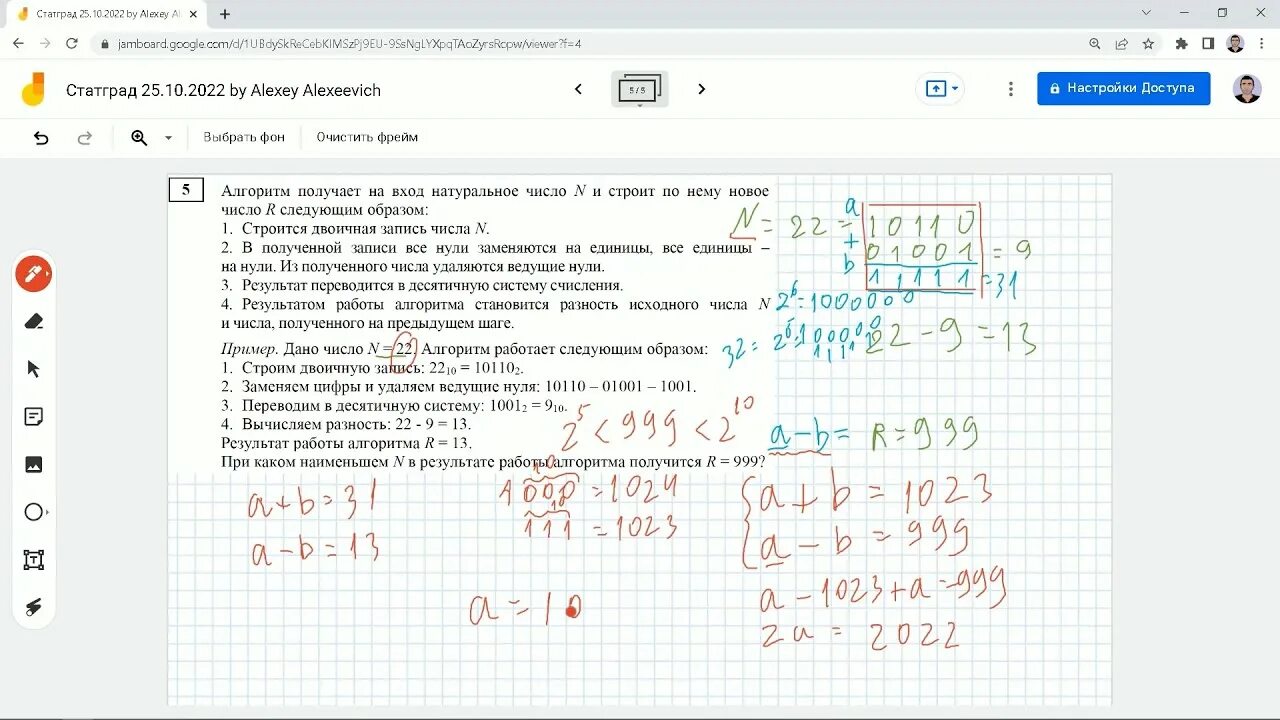 Статград 25.10.2022 by Alexey A
jamboard.google.com/d/1UBdySkReCsbKIMSzPj9EU-9SsNgLYXpqTAoZysRcpw/viewer?f=4
Статград 25.10.2022 by Alexey Alexeevich
5 / 5
Настройки Доступа
Выбрать фон
Очистить фрейм
5
Алгоритм получает на вход натуральное число N и строит по нему новое
число R следующим образом:
1. Строится двоичная запись числа N.
2. В полученной записи все нули заменяются на единицы, все единицы –
на нули. Из полученного числа удаляются ведущие нули.
3. Результат переводится в десятичную систему счисления.
4. Результатом работы алгоритма становится разность исходного числа N
и числа, полученного на предыдущем шаге.
Пример. Дано число N = 22. Алгоритм работает следующим образом:
1. Строим двоичную запись: 22₁₀ = 10110₂.
2. Заменяем цифры и удаляем ведущие нуля: 10110 – 01001 – 1001.
3. Переводим в десятичную систему: 1001₂ = 9₁₀.
4. Вычисляем разность: 22 - 9 = 13.
Результат работы алгоритма R = 13.
При каком наименьшем N в результате работы алгоритма получится R = 999?
N = 22 = a 10110
+
b 01001 = 9
11111 = 31
2⁶ = 1000000
32 = 2⁵ = 100000
11111
22 - 9 = 13
2⁵ < 999 < 2¹⁰
a - b = R = 999
a + b = 31
a - b = 13
10
1 000 = 1024
10
111 = 1023
a = 10
a + b = 1023
a - b = 999
a - 1023 + a = 999
2a = 2022